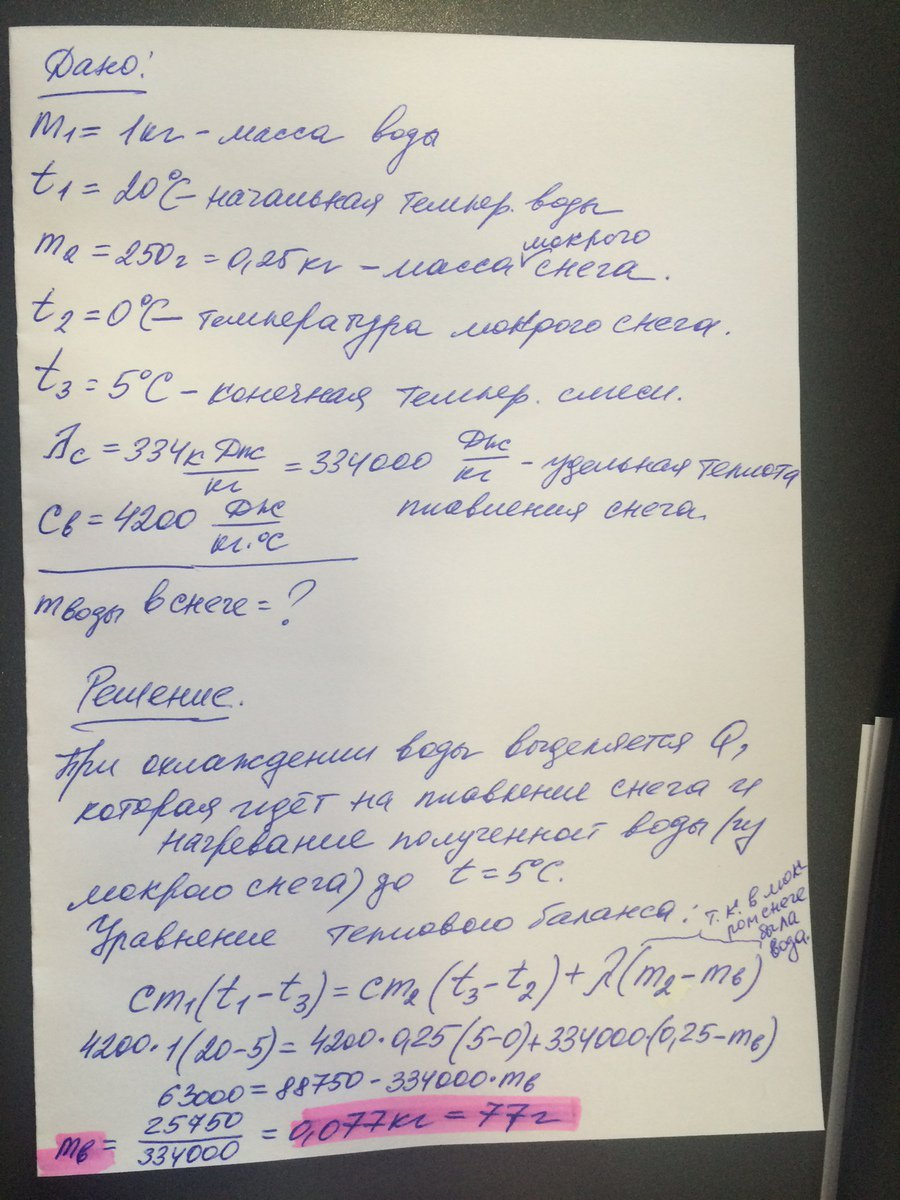 Дано:
m₁ = 1кг – масса воды
t₁ = 20°C – начальная темпер. воды
m₂ = 250г = 0,25кг – масса мокрого снега.
t₂ = 0°C – температура мокрого снега.
t₃ = 5°C – конечная темпер. смеси.
λс = 334 кДж/кг = 334000 Дж/кг – удельная теплота
плавления снега.
Cв = 4200 Дж/кг·°C
mводы в снеге = ?
Решение.
При охлаждении воды выделяется Q,
которая идёт на плавление снега и
нагревание полученной воды (из
мокрого снега) до t = 5°C.
Уравнение теплового баланса:
т.к. в мок-
ром снеге
была
вода.
cm₁(t₁-t₃) = cm₂(t₃-t₂) + λ(m₂-mв)
4200·1(20-5) = 4200·0,25(5-0)+334000·(0,25-mв)
63000 = 88750 - 334000·mв
mв = 25750/334000 = 0,077кг = 77г